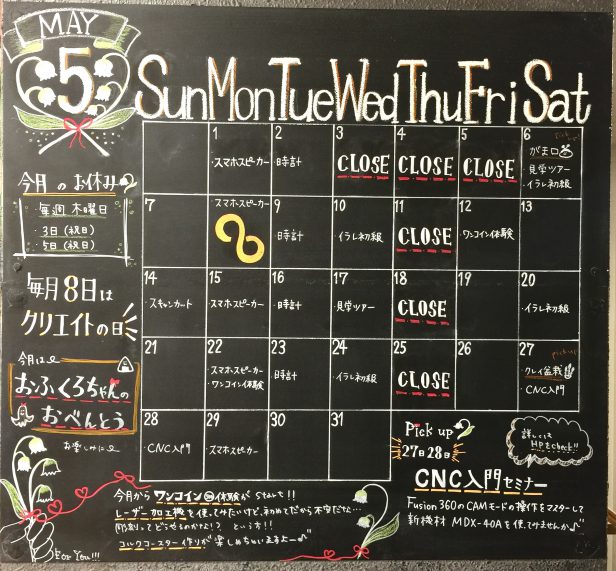 MAY
5
Sun Mon Tue Wed Thu Fri Sat
今月のお休み
毎週 木曜日
3日(祝日)
5日(祝日)
毎月8日は
クリエイトの日
今月は
おふくろちゃんの
おべんとう
お楽しみに
For You!!!
1
・スマホスピーカー
2
・日時計
3
CLOSE
4
CLOSE
5
CLOSE
6
pick up!
がま口
・見学ツアー
・イラレ初級
7
スマホスピーカー
9
・日時計
10
・イラレ初級
11
CLOSE
12
・ワンコイン体験
13
14
・スキャンカット
15
・スマホスピーカー
16
・日時計
17
・見学ツアー
18
CLOSE
19
20
・イラレ初級
21
22
・スマホスピーカー
・ワンコイン体験
23
・日時計
24
・イラレ初級
25
CLOSE
26
27
pick up!
クレイ盆栽
・CNC入門
28
・CNC入門
29
・スマホスピーカー
30
31
Pick up
27日28日
CNC入門セミナー
詳しくは
HPをcheck!!
Fusion360のCAMモードの操作をマスターして
新機材 MDX-40Aを使ってみませんか
今月から ワンコイン体験が start!!
レーザー加工機を使ってみたいけど、初めてだから不安だな…
彫刻ってどうやるのかな!? という方!!
コルクコースター作りが楽しめちゃいますよー